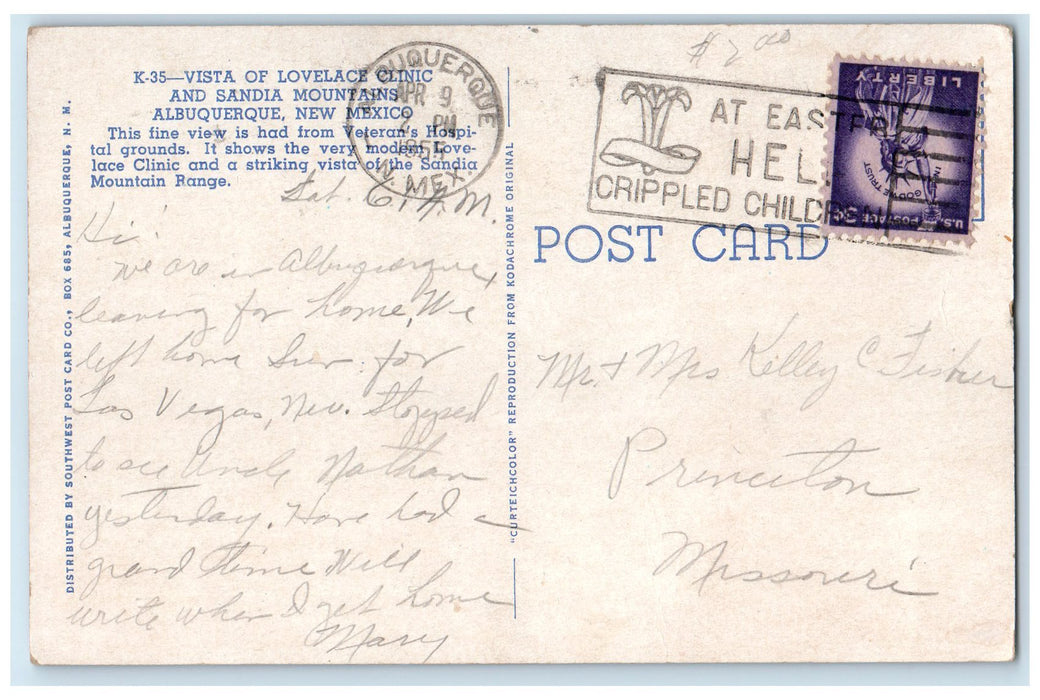 K-35—VISTA OF LOVELACE CLINIC
AND SANDIA MOUNTAINS
ALBUQUERQUE, NEW MEXICO
This fine view is had from Veteran's Hospi-
tal grounds. It shows the very modern Love-
lace Clinic and a striking vista of the Sandia
Mountain Range.
DISTRIBUTED BY SOUTHWEST POST CARD CO., BOX 685, ALBUQUERQUE, N. M.
"CURTEICHCOLOR" REPRODUCTION FROM KODACHROME ORIGINAL
ALBUQUERQUE
APR 9
2 PM
1955
N. MEX.
AT EASTER
HELP
CRIPPLED CHILDREN
LIBERTY
IN GOD WE TRUST
U.S. POSTAGE 3¢
POST CARD
Sat. A.M.
Hi!
We are in Albuquerque
leaving for home. We
left home Sun. for
Las Vegas, Nev. Stopped
to see Uncle Nathan
yesterday. Have had a
grand time Will
write when I get home
Mary
Mr. & Mrs Kelley C Fisher
Princeton
Missouri